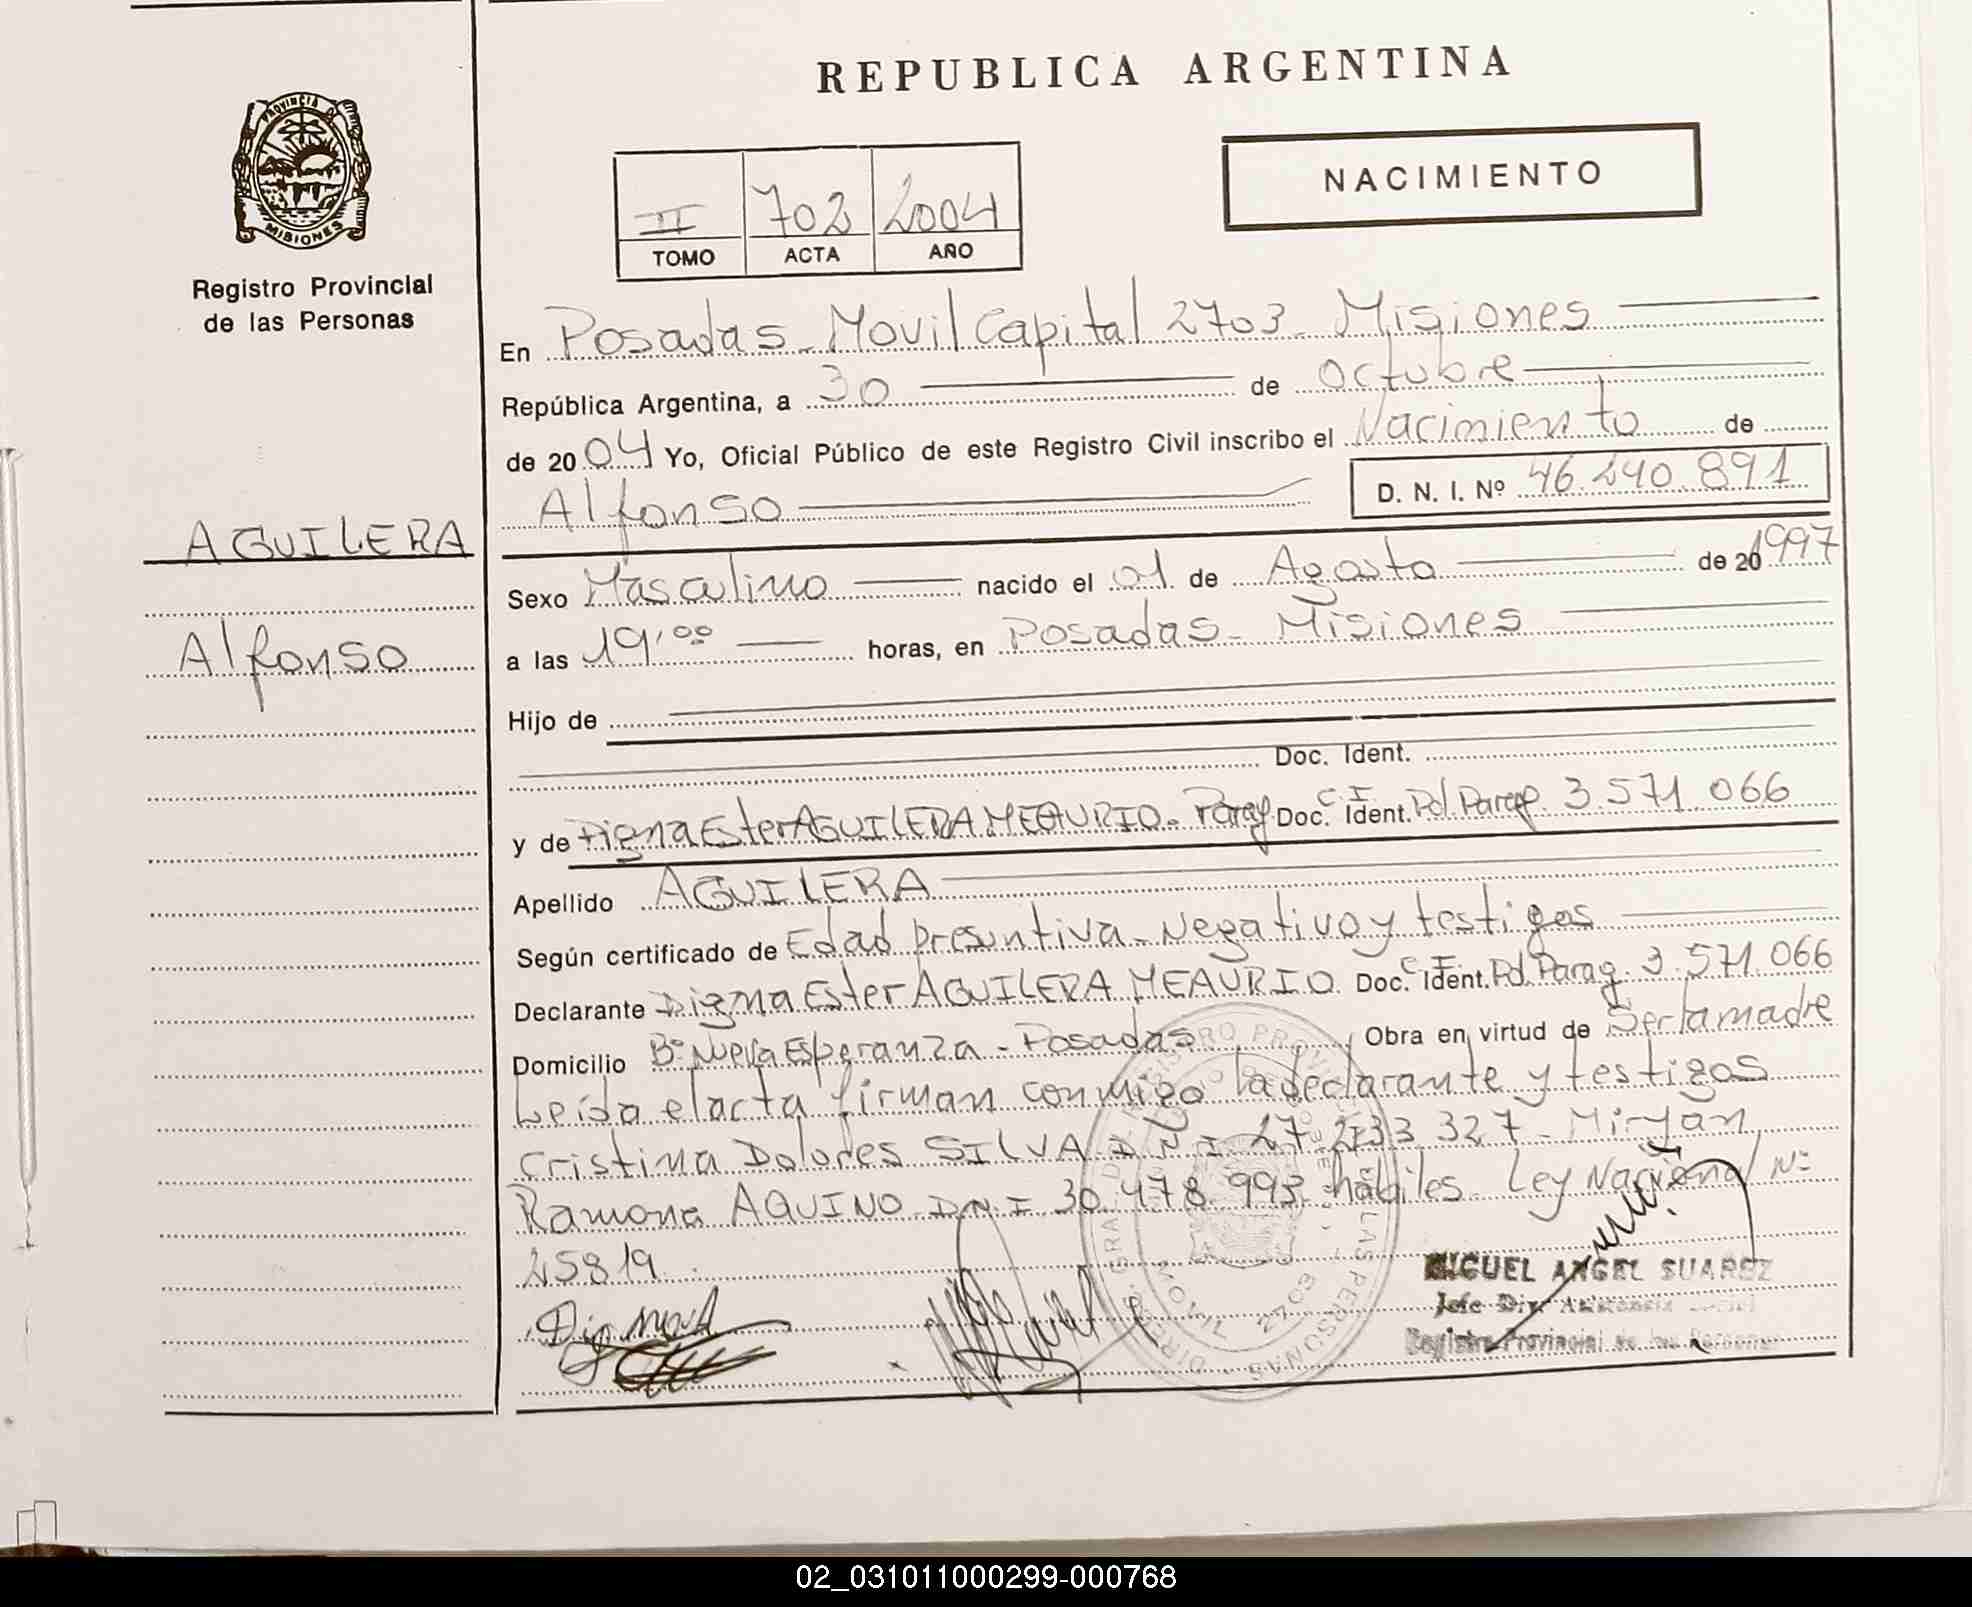 REPUBLICA ARGENTINA
PROVINCIA DE
MISIONES
Registro Provincial
de las Personas
II 702 2004
TOMO ACTA AÑO
NACIMIENTO
En Posadas - Movil Capital 2703 - Misiones
República Argentina, a 30 de Octubre
de 2004 Yo, Oficial Público de este Registro Civil inscribo el Nacimiento de
Alfonso D. N. I. Nº 46.240.891
AGUILERA
Alfonso
Sexo Masculino nacido el 01 de Agosto de 20 1997
a las 19,00 horas, en Posadas - Misiones
Hijo de
Doc. Ident.
y de Digna Ester AGUILERA MEAURIO - Parag Doc. Ident. C I Pol. Parag. 3.571.066
Apellido AGUILERA
Según certificado de Edad presuntiva - Negativo y testigos
Declarante Digna Ester AGUILERA MEAURIO Doc. Ident. C I Pol. Parag. 3.571.066
Domicilio Bº Nueva Esperanza - Posadas Obra en virtud de Ser la madre
Leída el acta firman conmigo la declarante y testigos
Cristina Dolores SILVA D N I 27.233.327 - Miryan
Ramona AQUINO D N I 30.478.993 hábiles - Ley Nacional Nº
25819
Digna
MIGUEL ANGEL SUAREZ
Jefe Div.
Registro Provincial de las Personas
02_031011000299-000768